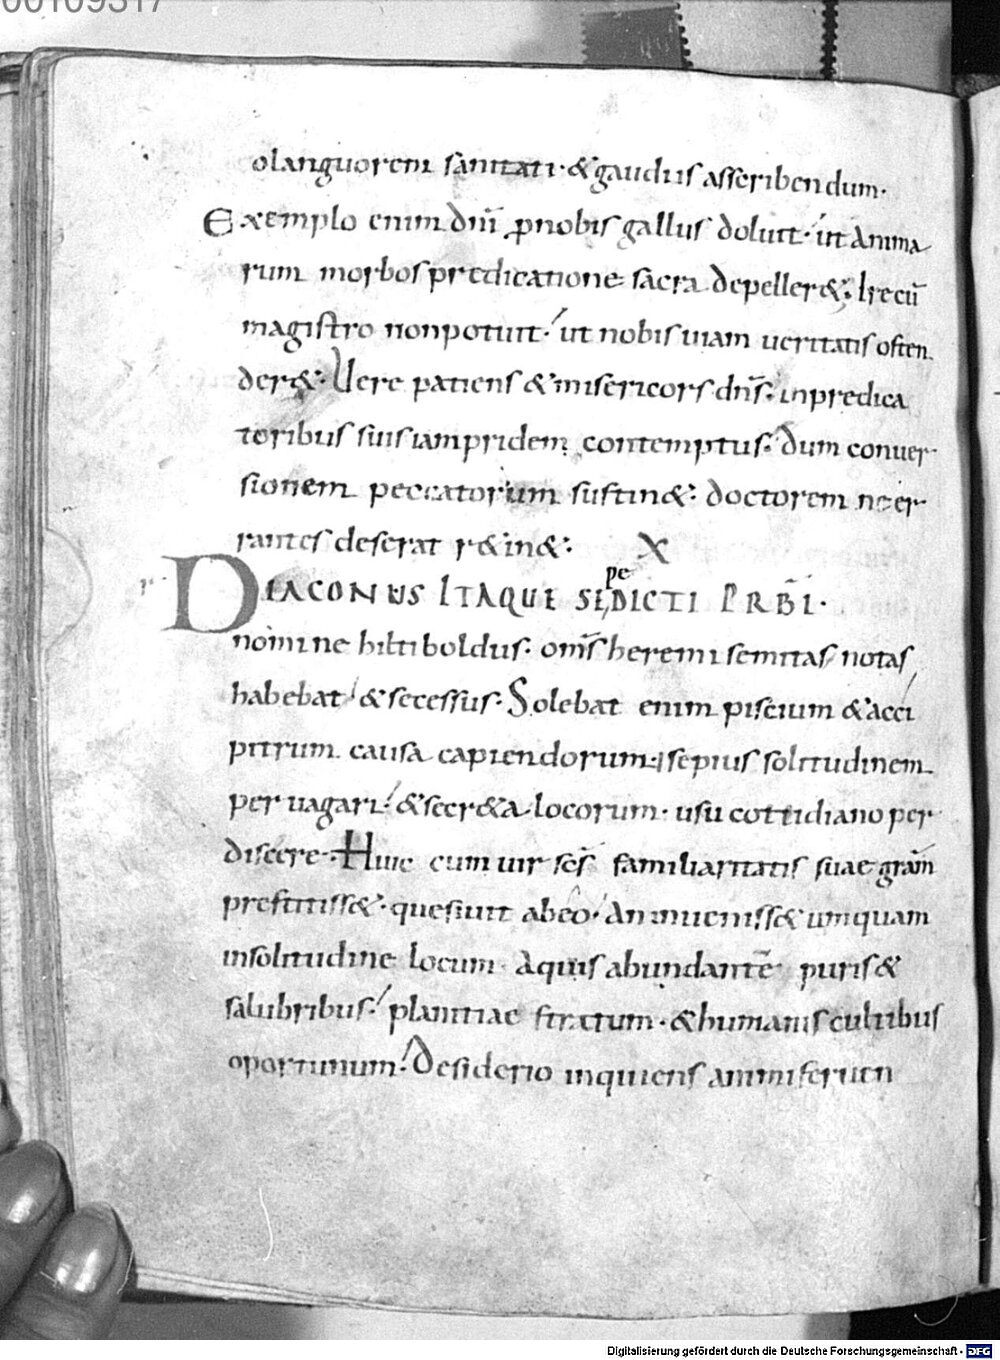 00109317
olanguorem sanitati · & gaudiis asseribendum ·
Exemplo enim dnī ꝓnobis gallus doluit · ut anima
rum morbos predicatione sacra depeller& · Ire cū
magistro non potuit · ut nobis uiam ueritatis often
der& · Uere patiens & misericors dn̄s · in predica
toribus suis iampridem contemptus · dum conuer
sionem peccatorum sustin& · doctorem ne er
rantes deserat r&in& · X
DIACONUS ITAQUE SEpeDICTI PRB̄I ·
nomine hiltiboldus · om̄s heremi semitas notas
habebat · & secessus · Solebat enim piscium & acci
pitrum causa capiendorum · sepius solitudinem
peruagari · & secr&a locorum · usu cottidiano per
discere · Huic cum uir sc̄s familiaritatis suae gram̄
prestitiss& · quesiuit ab eo · an inueniss& umquam
in solitudine locum · aquis abundantē puris &
salubribus · planitiae stratum · & humanis cultibus
oportunum · Desiderio inquiens animi feruen
Digitalisierung gefördert durch die Deutsche Forschungsgemeinschaft - DFG